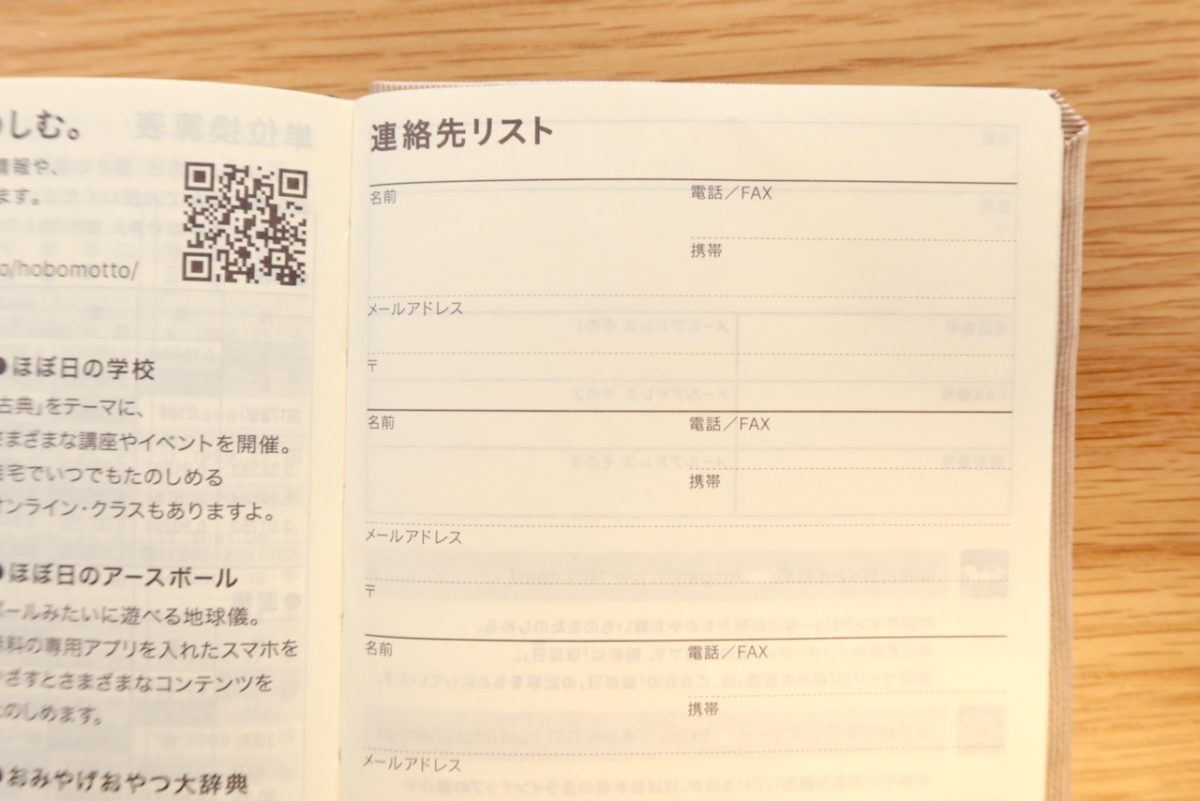 しむ。
情報や、
ます。
o/hobomotto/
●ほぼ日の学校
古典」をテーマに、
さまざまな講座やイベントを開催。
自宅でいつでもたのしめる
オンライン・クラスもありますよ。
●ほぼ日のアースボール
ボールみたいに遊べる地球儀。
無料の専用アプリを入れたスマホを
かざすとさまざまなコンテンツを
たのしめます。
●おみやげおやつ大辞典
連絡先リスト
名前
電話／FAX
携帯
メールアドレス
〒
名前
電話／FAX
携帯
メールアドレス
〒
名前
電話／FAX
携帯
メールアドレス